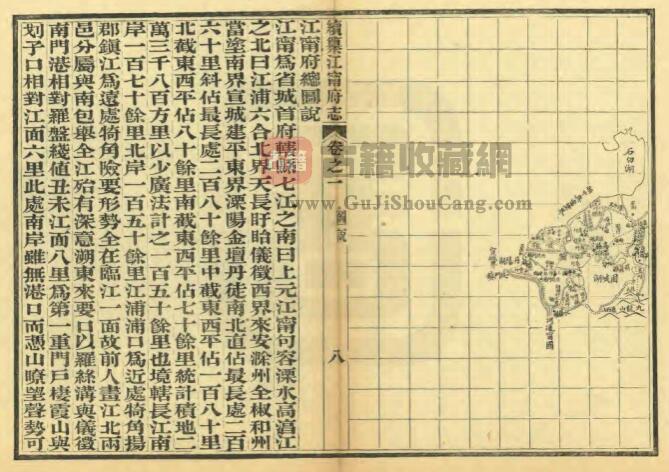 石臼湖
固城湖
續纂江甯府志
卷之二
圖說
八
江甯府總圖說
江甯爲省城首府轄縣七江之南曰上元江甯句容溧水高淳江
之北曰江浦六合北界天長盱眙儀徵西界來安滁州全椒和州
當塗南界宣城建平東界溧陽金壇丹徒南北直佔最長處二百
六十里斜佔最長處二百八十餘里中截東西平佔一百八十里
北截東西平佔八十餘里南截東西平佔七十餘里統計積地二
萬三千八百方里以少廣法計之一百五十餘里也境轄長江南
岸一百七十餘里北岸一百五十餘里江浦浦口爲近處犄角揚
郡鎮江爲遠處犄角險要形勢全在臨江一面故前人畫江北兩
邑分屬與南包舉全江殆有深意溯東來要口以羅絲溝與儀徵
南門港相對羅盤綫值丑未江面八里爲第一重門戶棲霞山與
划子口相對江面六里此處南岸雖無港口而憑山瞭望聲勢可
古籍收藏网
www.GuJiShouCang.com